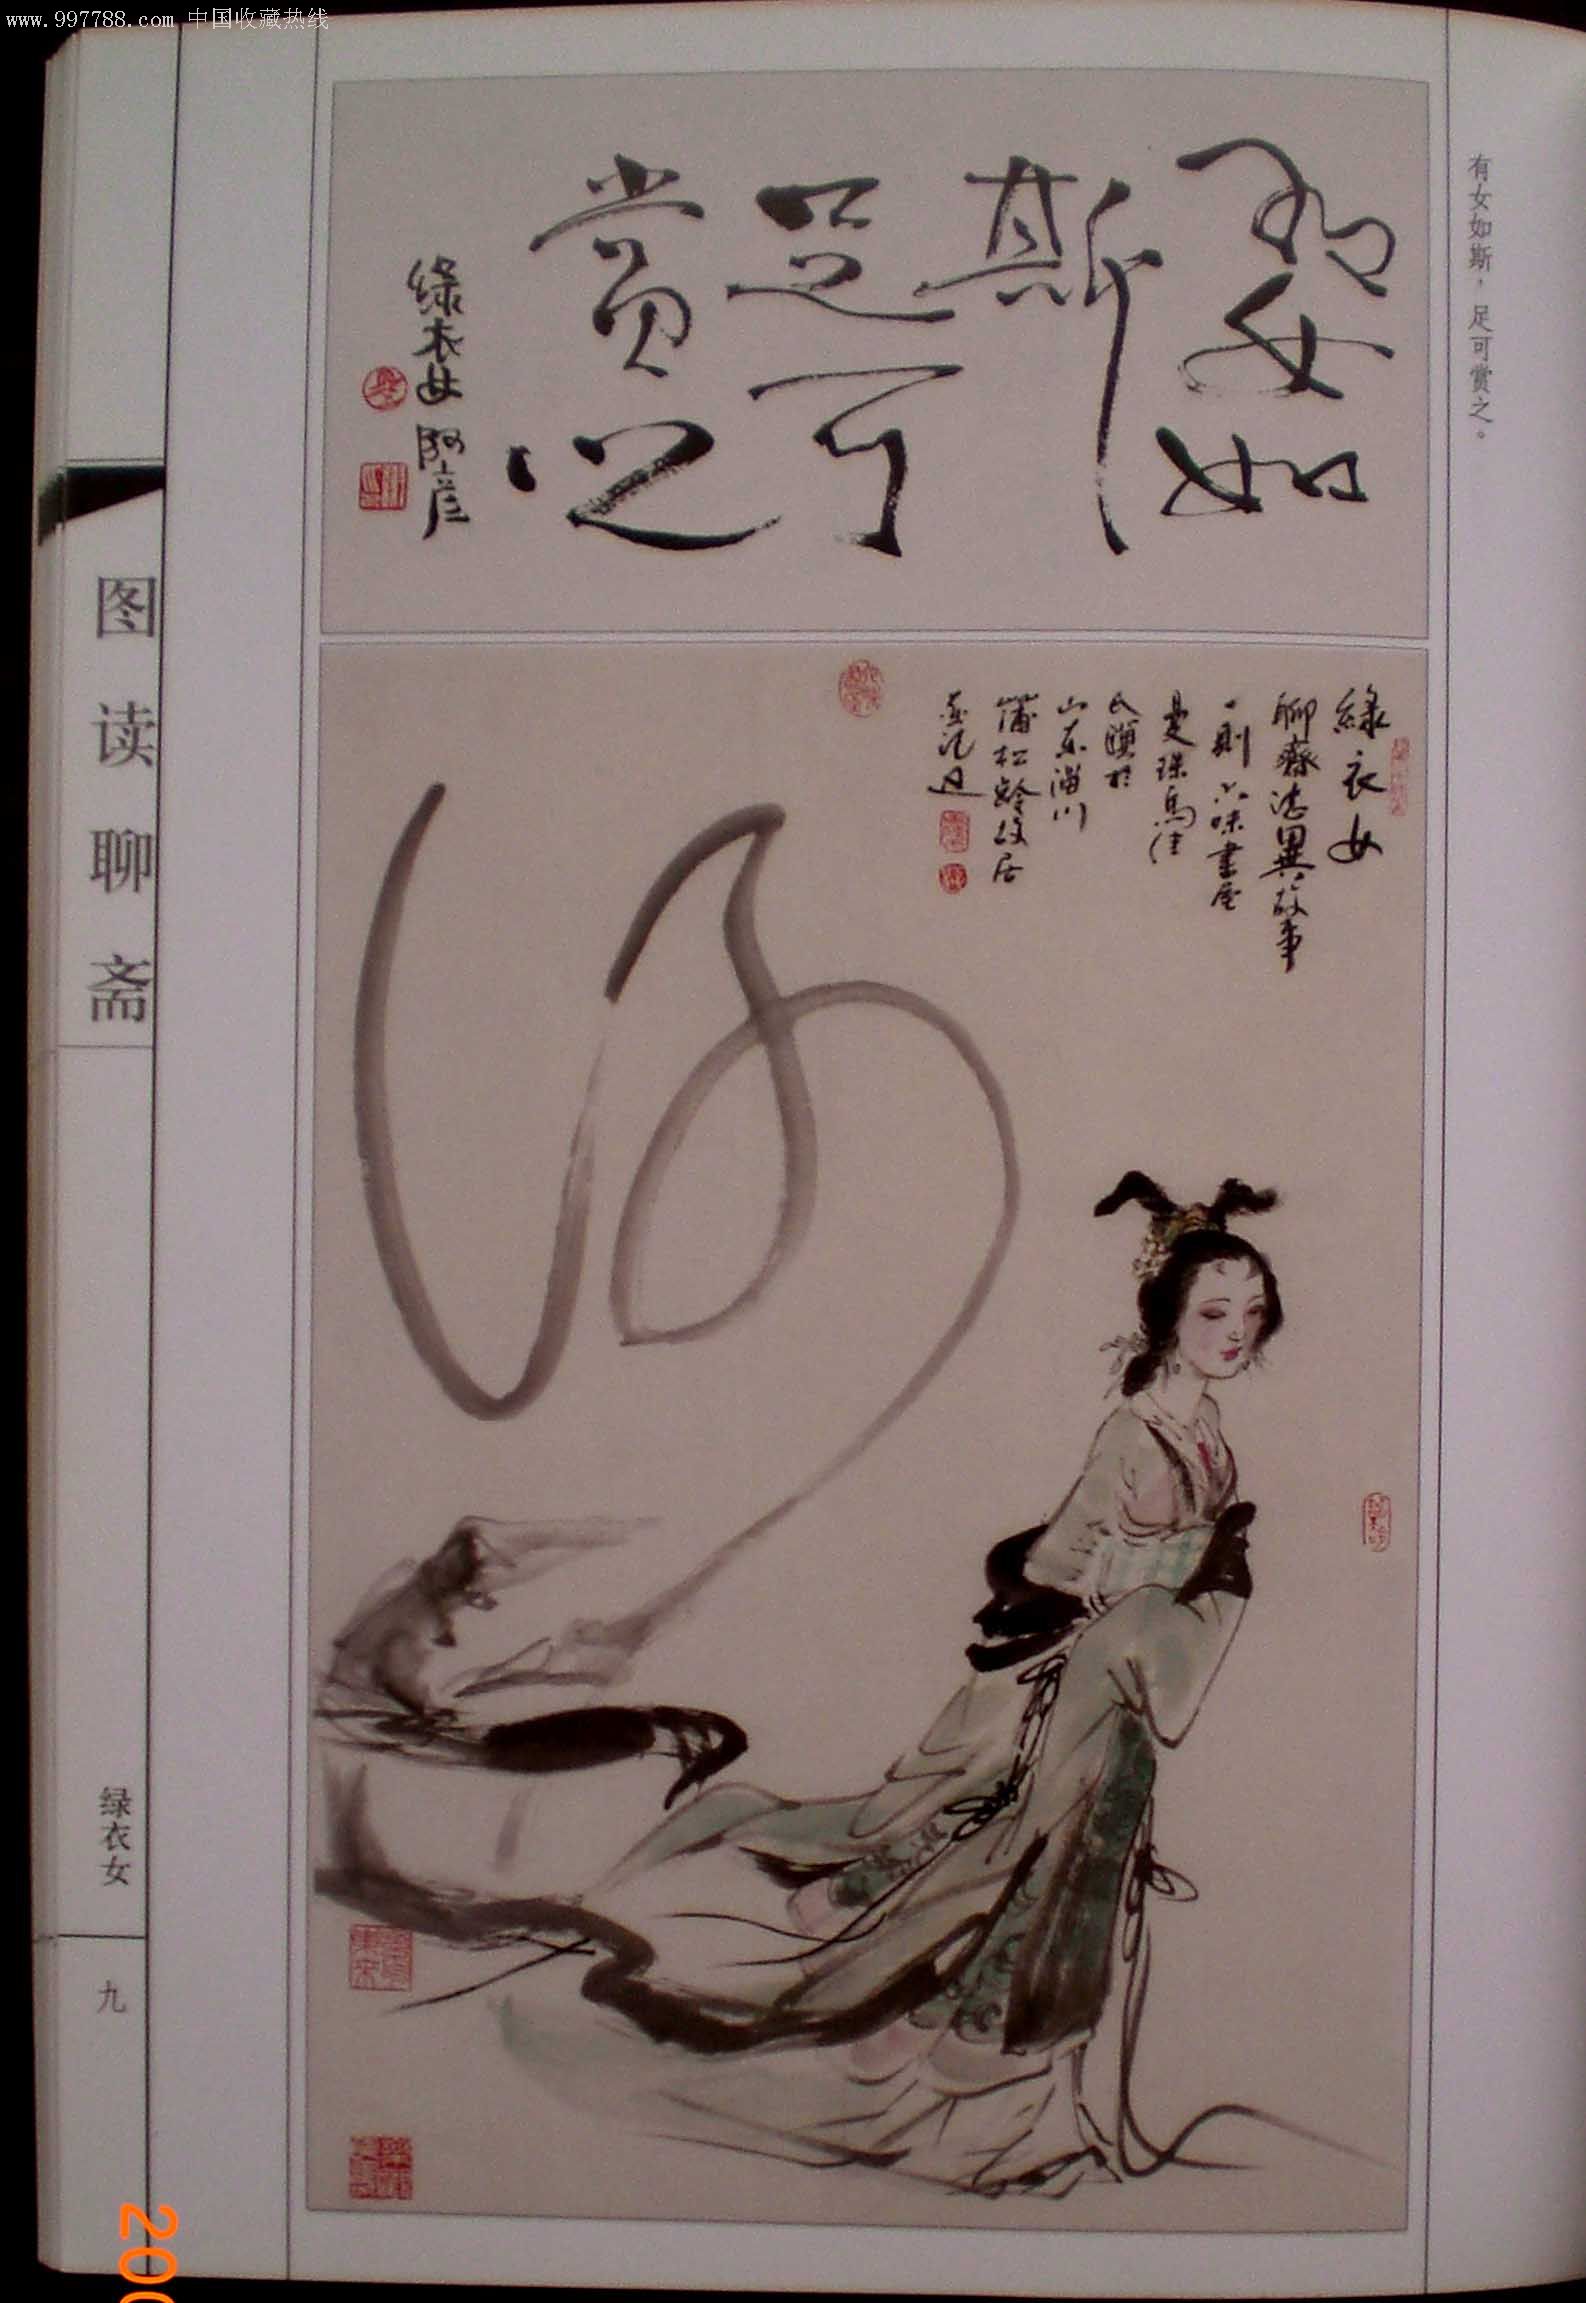 www.997788.com 中国收藏热线
有女如斯，足可赏之。
有女如
斯
足可
赏之
绿衣女 阿彦
绿衣女
聊齋志異故事
一則 六味書屋
是珠馬佳
氏頤於
山东淄川
蒲松龄故居
图读聊斋
绿衣女
九
200